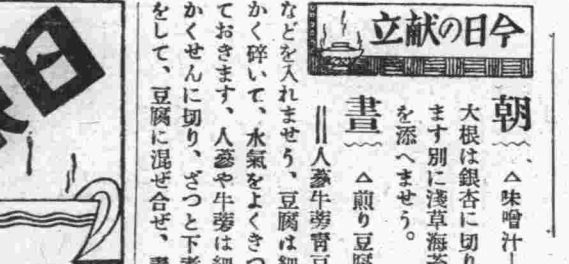 今日の献立
朝
△味噌汁―
大根は銀杏に切り
ます別に淺草海苔
を添へませう。
晝
△煎り豆腐
‖人蔘牛蒡靑豆
などを入れませう、豆腐は細
かく碎いて、水氣をよくきつ
ておきます、人蔘や牛蒡は細
かくせんに切り、ざつと下煮
をして、豆腐に混ぜ合せ、